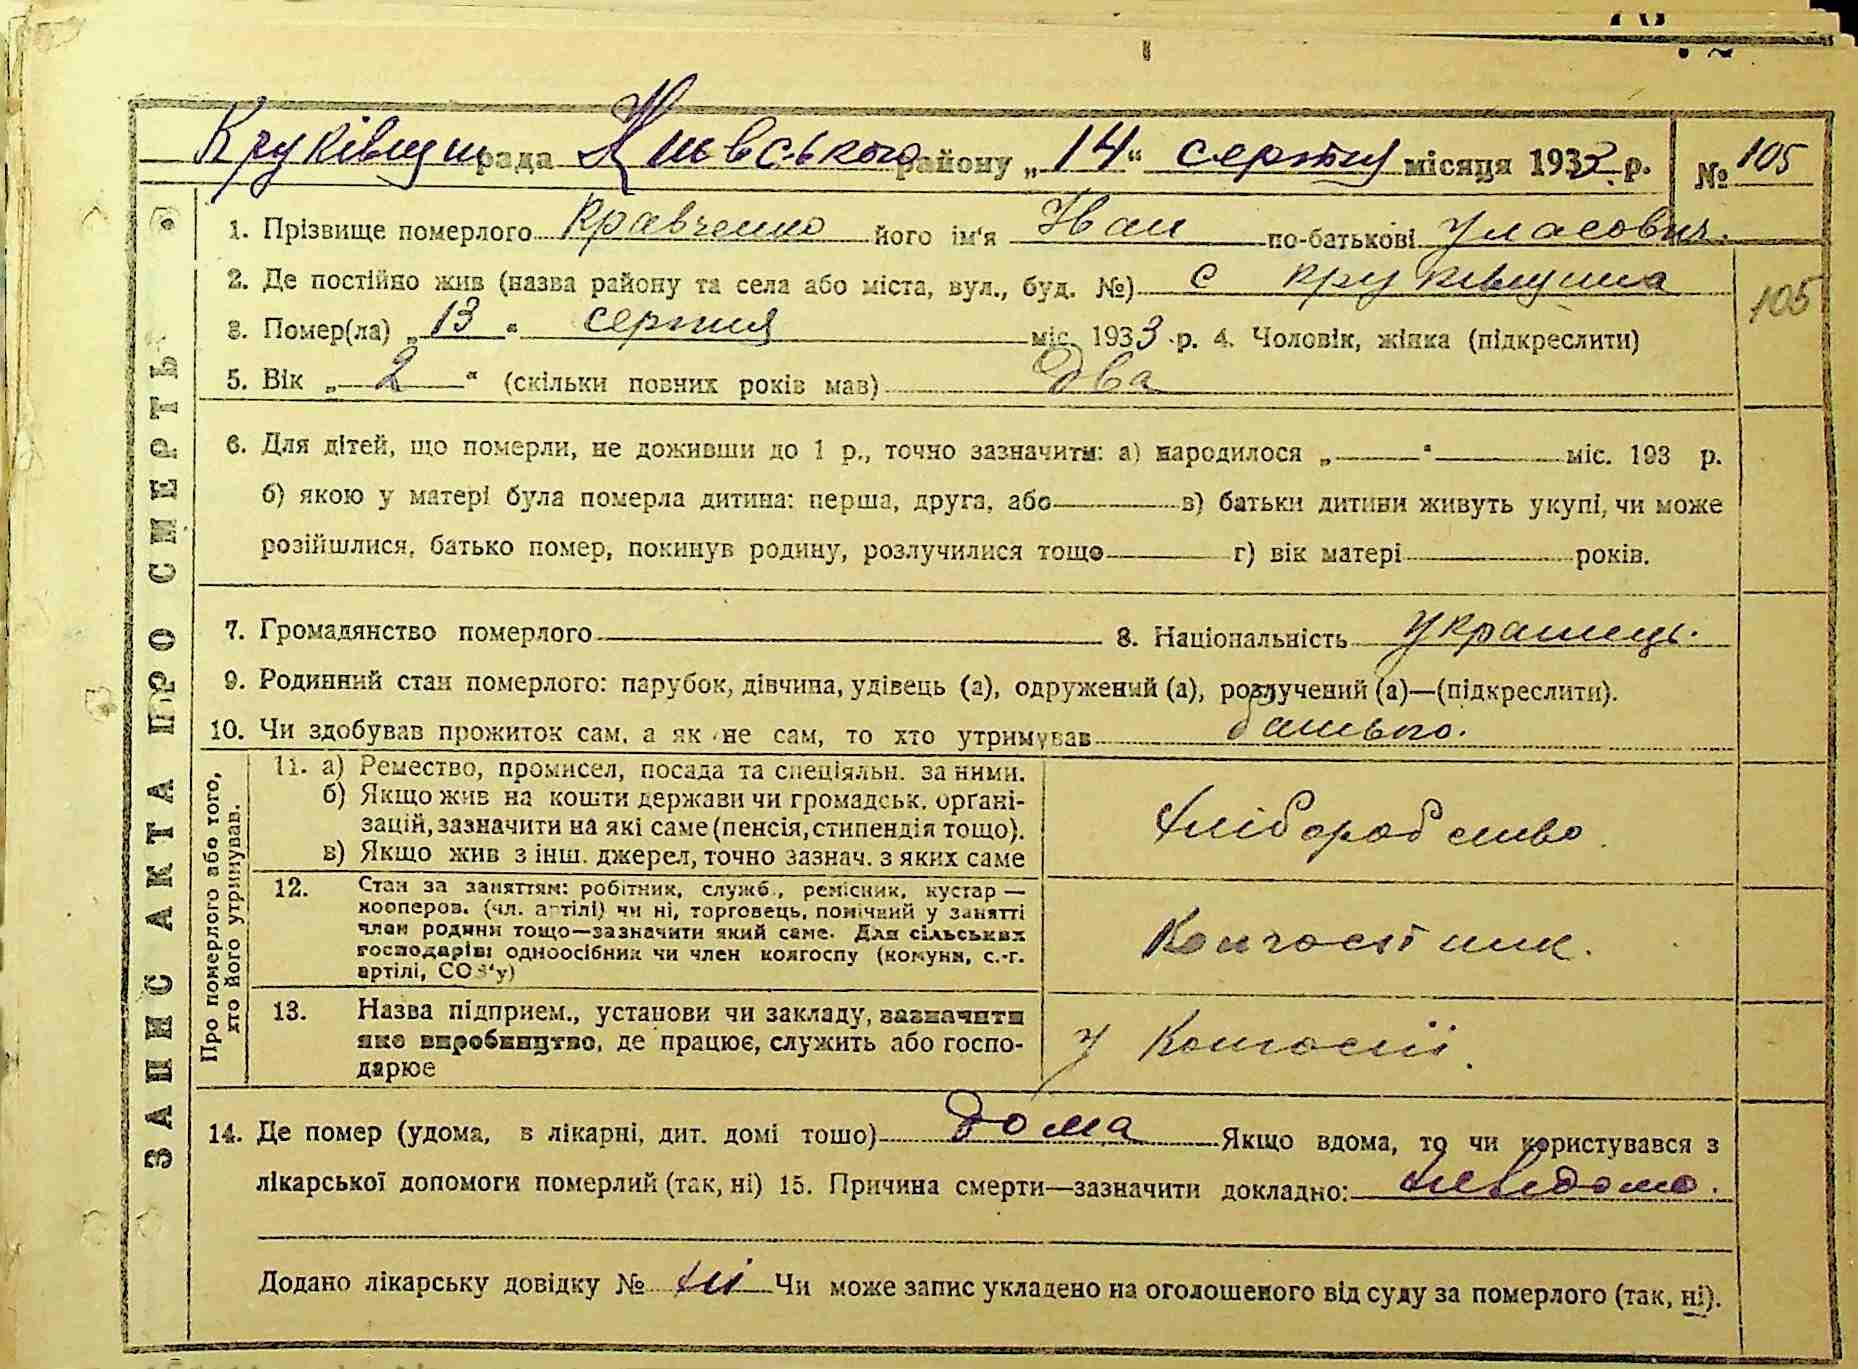 Круківщин рада Київського району „14“ серпня місяця 1933 р. № 105
1. Прізвище померлого Кравченко його ім'я Іван по-батькові Уласович.
2. Де постійно жив (назва району та села або міста, вул., буд. №) с Круківщина
105
3. Помер(ла) „13“ серпня міс. 1933 р. 4. Чоловік, жінка (підкреслити)
5. Вік „2“ (скільки повних років мав) два
6. Для дітей, що померли, не доживши до 1 р., точно зазначити: а) народилося „ “ міс. 193 р.
б) якою у матері була померла дитина: перша, друга, або в) батьки дитини живуть укупі, чи може
розійшлися, батько помер, покинув родину, розлучилися тощо г) вік матері років.
7. Громадянство померлого 8. Національність Українець.
9. Родинний стан померлого: парубок, дівчина, удівець (а), одружений (а), розлучений (а)—(підкреслити).
10. Чи здобував прожиток сам, а як не сам, то хто утримував батько.
ЗАПИС АКТА ПРО СМЕРТЬ
Про померлого або того, хто його утримував.
11. а) Ремество, промисел, посада та спеціяльн. за ними.
б) Якщо жив на кошти держави чи громадськ. орґані-
зацій, зазначити на які саме (пенсія, стипендія тощо).
в) Якщо жив з інш. джерел, точно зазнач. з яких саме
Хліборобство.
12. Стан за заняттям: робітник, служб., ремісник, кустар —
кооперов. (чл. артілі) чи ні, торговець, помічний у занятті
член родини тощо—зазначити який саме. Для сільських
господарів: одноосібник чи член колгоспу (комуни, с.-г.
артілі, СОЗ'у)
Колгоспник.
13. Назва підприєм., установи чи закладу, зазначити
яке виробництво, де працює, служить або госпо-
дарює
у Колгоспі.
14. Де помер (удома, в лікарні, дит. домі тощо) Дома Якщо вдома, то чи користувався з
лікарської допомоги померлий (так, ні) 15. Причина смерти—зазначити докладно: невідомо.
Додано лікарську довідку № ні Чи може запис укладено на оголошеного від суду за померлого (так, ні).